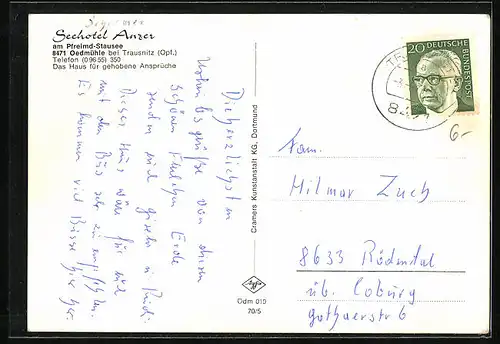 Seehotel Anzer
am Pfreimd-Stausee
8471 Oedmühle bei Trausnitz (Opf.)
Telefon (0 96 55) 350
Das Haus für gehobene Ansprüche
Die herzlichsten
Grüße von diesem
schönen Erde
senden euch Gisela u.
Dieses Haus wäre für
mit dem Bus sehr zu empfehlen.
Es kommen viel Büsse hier her.
Cramers Kunstanstalt KG, Dortmund
Agfa
Odm 010
70/5
20 DEUTSCHE BUNDESPOST
8471
6.-
Fam.
Hilmar Zuch
8633 Rödental
üb. Coburg
gothaerstr 6